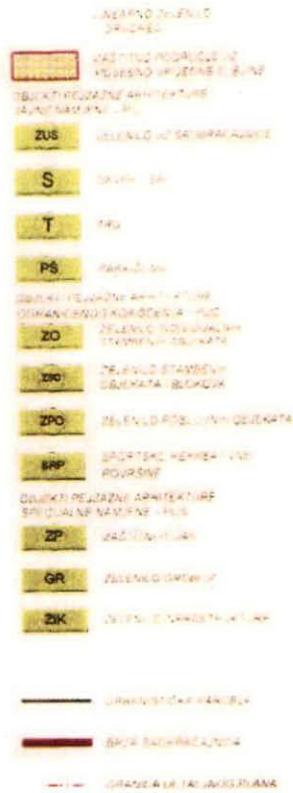 LINEARNO ZELENILO
DRVORED
OBJEKTI PEJZAŽNE ARHITEKTURE
JAVNE NAMJENE - PUJ
ZUS
ZELENILO UZ SAOBRAĆAJNICE
S
T
TRG
PŠ
OBJEKTI PEJZAŽNE ARHITEKTURE
OGRANIČENOG KORIŠĆENJA - PUO
ZO
ZELENILO INDIVIDUALNIH
STAMBENIH OBJEKATA
ZELENILO STAMBENIH
OBJEKATA I BLOKOVA
ZPO
ZELENILO POSLOVNIH OBJEKATA
SRP
SPORTSKO REKREATIVNE
POVRŠINE
OBJEKTI PEJZAŽNE ARHITEKTURE
SPECIJALNE NAMJENE - PUS
ZP
ZAŠTITNI POJAS
GR
ZELENILO GROBLJA
ZIK
ZELENILO INFRASTRUKTURE
URBANISTIČKA PARCELA
BRZA SAOBRAĆAJNICA
GRANICA DETALJNOG PLANA